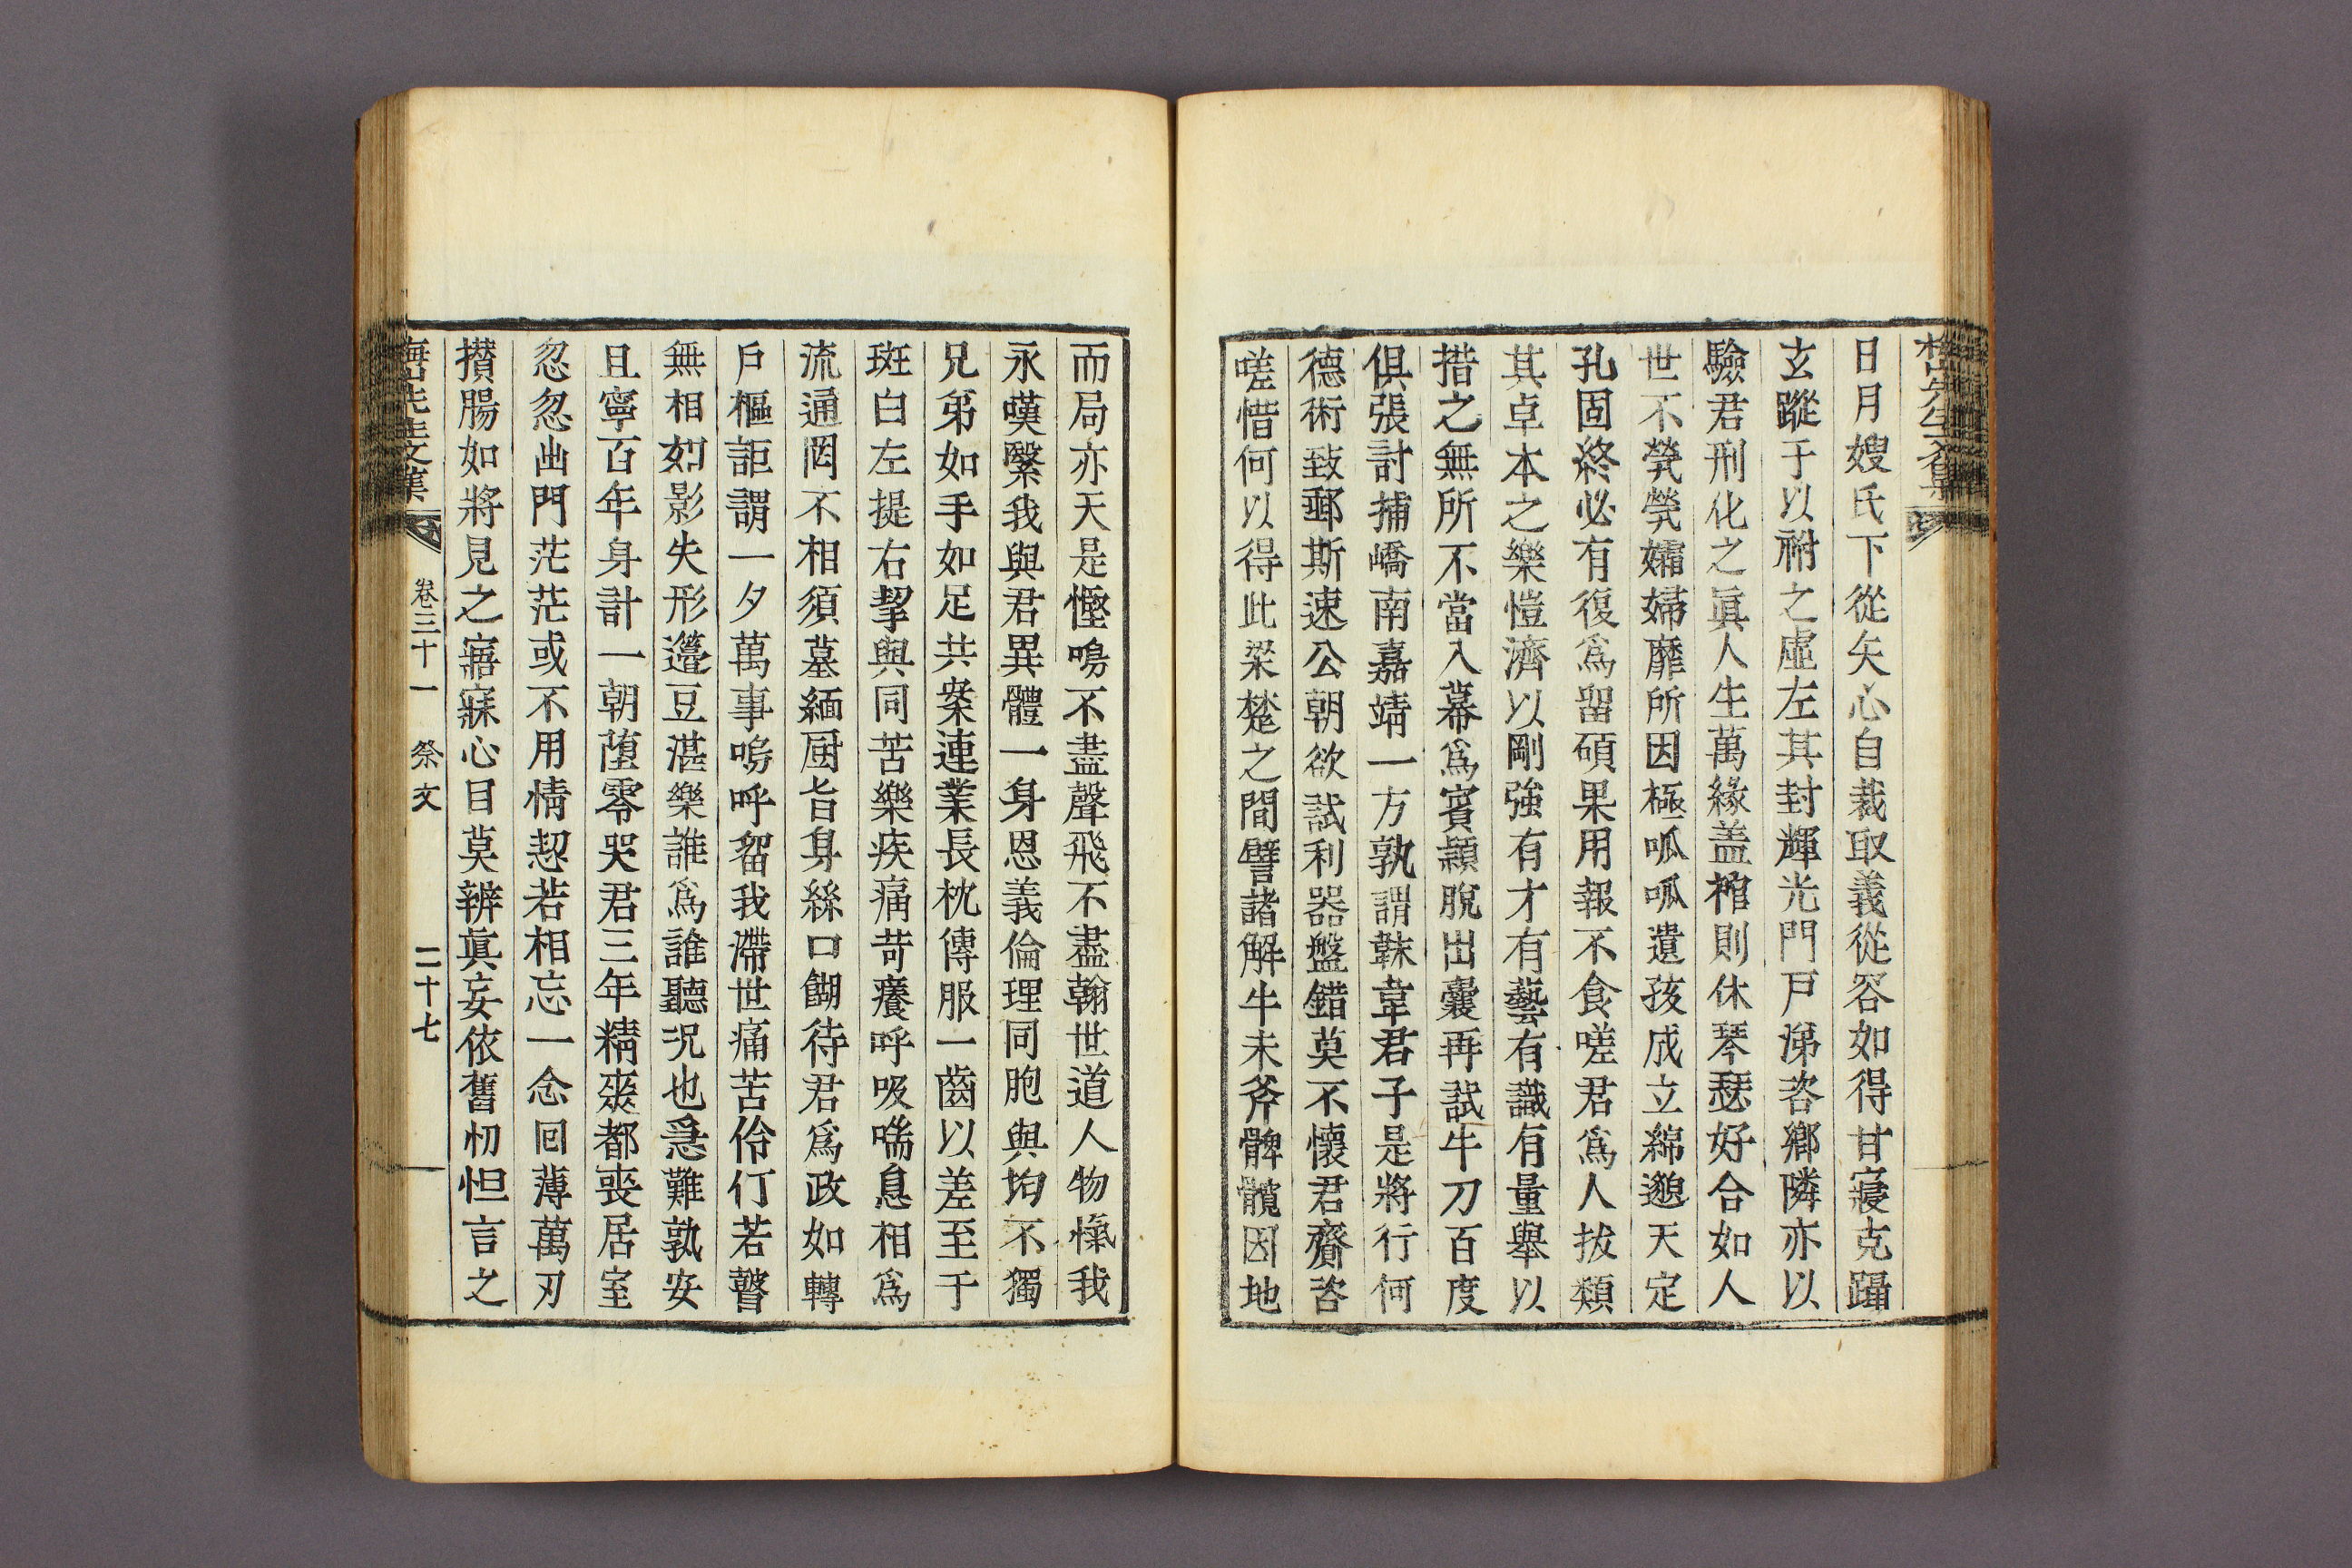 日月嫂氏下從矢心自裁取義從容如得甘寢克躡
玄蹤于以祔之虛左其封輝光門戶涕咨鄉隣亦以
驗君刑化之眞人生萬緣盖棺則休琴瑟好合如人
世不煢煢孀婦靡所因極呱呱遺孩成立綿邈天定
孔固終必有復爲留碩果用報不食嗟君爲人拔類
其卓本之樂愷濟以剛強有才有藝有識有量舉以
措之無所不當入幕爲賓穎脫出囊再試牛刀百度
俱張討捕嶠南嘉靖一方孰謂韎韋君子是將行何
德術致郵斯速公朝欲試利器盤錯莫不懷君齎咨
嗟惜何以得此梁楚之間譬諸解牛未斧髀髖因地
而局亦天是慳鳴不盡聲飛不盡翰世道人物慯我
永嘆繄我與君異體一身恩義倫理同胞與均不獨
兄弟如手如足共案連業長枕傳服一齒以差至于
斑白左提右挈與同苦樂疾痛苛癢呼吸喘息相爲
流通罔不相須墓緬厨旨身絲口餬待君爲政如轉
戶樞詎謂一夕萬事嗚呼留我滯世痛苦伶仃若瞽
無相如影失形籩豆湛樂誰爲誰聽況也急難孰安
且寧百年身計一朝墮零哭君三年精爽都喪居室
忽忽出門茫茫或不用情恝若相忘一念回薄萬刃
攅腸如將見之寤寐心目莫辨眞妄依舊忉怛言之
梅山先生文集 卷三十一 祭文 二十七